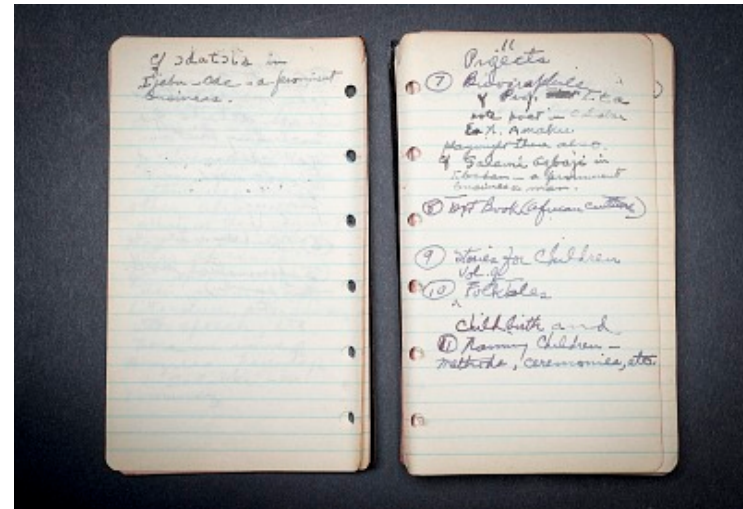 of Odatobs in
Ijebu-Ode - a prominent
business.
11
Projects
(7) Biographies
of Prog. I.C.a
note poet in Calabar
Ex N. Amaku
playwright there also.
of Salami Agbaji in
Ibadan - a prominent
business man.
(8) Book (African culture)
(9) Stories for Children
Vol. 
(10) Folktales
^
Childbirth and
(11) Naming Children -
methods, ceremonies, etc.